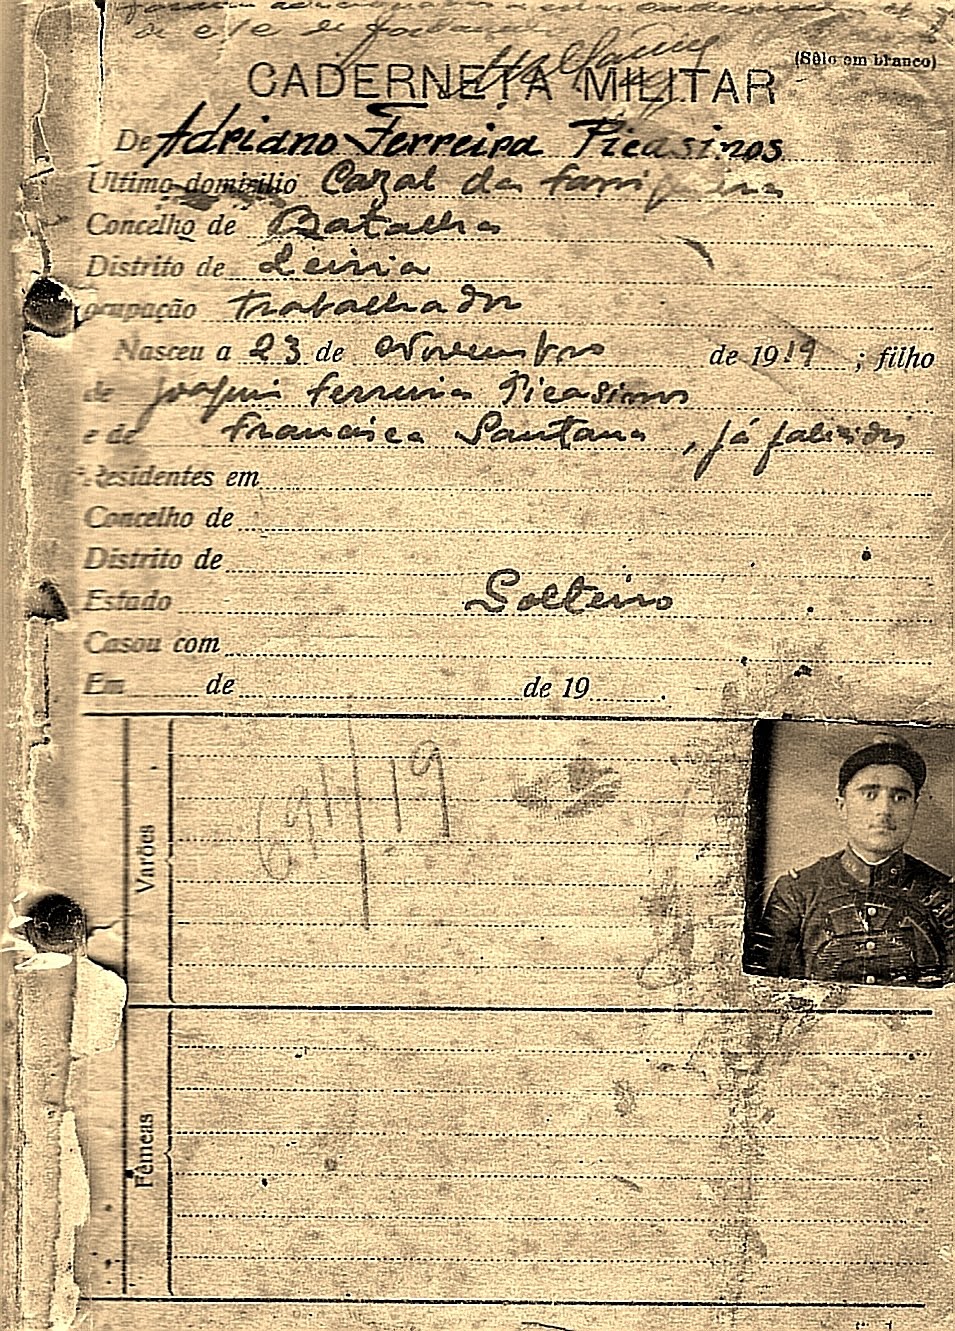 de
(Sêlo em branco)
CADERNETA MILITAR
De Adriano Ferreira Picasinos
Ultimo domicilio Cazal da
Concelho de Batalha
Distrito de Leiria
Ocupação trabalhador
Nasceu a 23 de Novembro de 1919 ; filho
de Joaquim Ferreira Picasinos
e de Francisca Santana, já falecidos
Residentes em
Concelho de
Distrito de
Estado Solteiro
Casou com
Em de de 19 .
Varões
691/19
Fêmeas